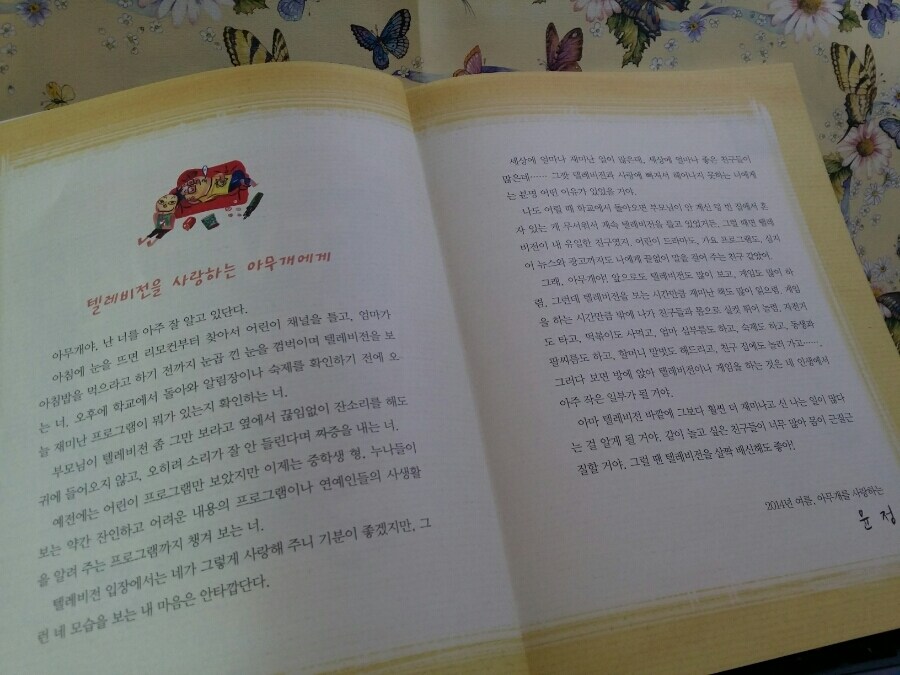 텔레비전을 사랑하는 아무개에게
아무개야, 난 너를 아주 잘 알고 있단다.
아침에 눈을 뜨면 리모컨부터 찾아서 어린이 채널을 틀고, 엄마가
아침밥을 먹으라고 하기 전까지 눈곱 낀 눈을 껌벅이며 텔레비전을 보
는 너. 오후에 학교에서 돌아와 알림장이나 숙제를 확인하기 전에 오
늘 재미난 프로그램이 뭐가 있는지 확인하는 너.
부모님이 텔레비전 좀 그만 보라고 옆에서 끊임없이 잔소리를 해도
귀에 들어오지 않고, 오히려 소리가 잘 안 들린다며 짜증을 내는 너.
예전에는 어린이 프로그램만 보았지만 이제는 중학생 형, 누나들이
보는 약간 잔인하고 어려운 내용의 프로그램이나 연예인들의 사생활
을 알려 주는 프로그램까지 챙겨 보는 너.
텔레비전 입장에서는 네가 그렇게 사랑해 주니 기분이 좋겠지만, 그
런 네 모습을 보는 내 마음은 안타깝단다.
세상에 얼마나 재미난 일이 많은데, 세상에 얼마나 좋은 친구들이
많은데…… 그깟 텔레비전과 사랑에 빠져서 헤어나지 못하는 너에게
는 분명 어떤 이유가 있었을 거야.
나도 어릴 때 학교에서 돌아오면 부모님이 안 계신 텅 빈 집에서 혼
자 있는 게 무서워서 계속 텔레비전을 틀고 있었거든. 그럴 때면 텔레
비전이 내 유일한 친구였지. 어린이 드라마도, 가요 프로그램도, 심지
어 뉴스와 광고까지도 나에게 끝없이 말을 걸어 주는 친구 같았어.
그래, 아무개야! 앞으로도 텔레비전도 많이 보고, 게임도 많이 하
렴. 그런데 텔레비전을 보는 시간만큼 재미난 책도 많이 읽으렴. 게임
을 하는 시간만큼 밖에 나가 친구들과 몸으로 실컷 뛰어 놀렴. 자전거
도 타고, 떡볶이도 사먹고, 엄마 심부름도 하고, 숙제도 하고, 동생과
팔씨름도 하고, 할머니 말벗도 해드리고, 친구 집에도 놀러 가고…….
그러다 보면 방에 앉아 텔레비전이나 게임을 하는 것은 네 인생에서
아주 작은 일부가 될 거야.
아마 텔레비전 바깥에 그보다 훨씬 더 재미나고 신 나는 일이 많다
는 걸 알게 될 거야. 같이 놀고 싶은 친구들이 너무 많아 몸이 근질근
질할 거야. 그럴 땐 텔레비전을 살짝 배신해도 좋아!
2014년 여름, 아무개를 사랑하는
윤정